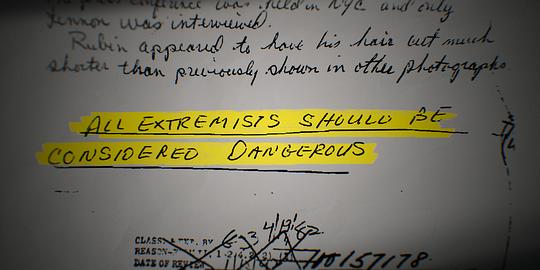 press conference was held in NYC and only
Lennon was interviewed.
Rubin appeared to have his hair cut much
shorter than previously shown in other photographs
ALL EXTREMISTS SHOULD BE
CONSIDERED DANGEROUS
CLASS. & EXP. BY
REASON-
DATE OF REVIEW